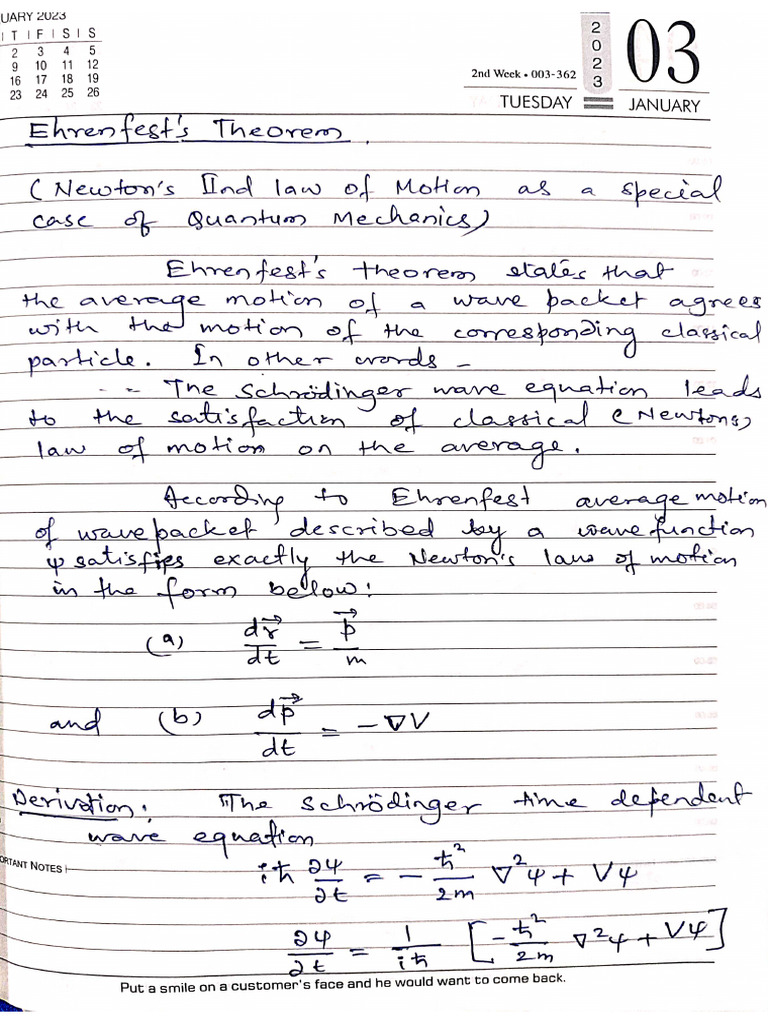 UARY 2023
T F S S
2 3 4 5
9 10 11 12
16 17 18 19
23 24 25 26
2nd Week • 003-362
TUESDAY
2023
03
JANUARY
Ehrenfest's Theorem.
(Newton's IInd law of Motion as a special
case of Quantum Mechanics)
Ehrenfest's theorem states that
the average motion of a wave packet agrees
with the motion of the corresponding classical
particle. In other words -
-- The Schrödinger wave equation leads
to the satisfaction of classical (Newtons)
law of motion on the average.
According to Ehrenfest average motion
of wave packet described by a wave function
ψ satisfies exactly the Newton's law of motion
in the form below:
(a) d\vec{r}/dt = \vec{p}/m
and (b) d\vec{p}/dt = -∇V
Derivation: The Schrödinger time dependent
wave equation
iħ ∂ψ/∂t = - ħ²/2m ∇²ψ + Vψ
ORTANT NOTES
∂ψ/∂t = 1/iħ [-ħ²/2m ∇²ψ + Vψ]
Put a smile on a customer's face and he would want to come back.